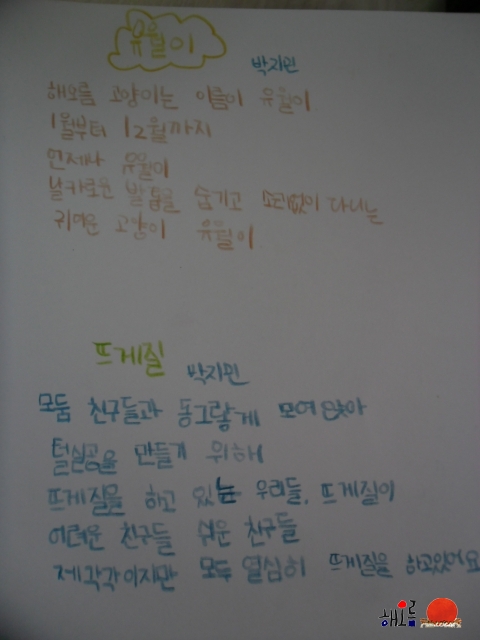 유월이
박지민
해오름 고양이는 이름이 유월이
1월부터 12월까지
언제나 유월이
날카로운 발톱을 숨기고 소리없이 다니는
귀여운 고양이 유월이
뜨게질
박지민
모둠 친구들과 동그랗게 모여 앉아
털실공을 만들기 위해
뜨게질을 하고 있는 우리들, 뜨게질이
어려운 친구들 쉬운 친구들
제각각이지만 모두 열심히 뜨게질을 하고있어요
해오름